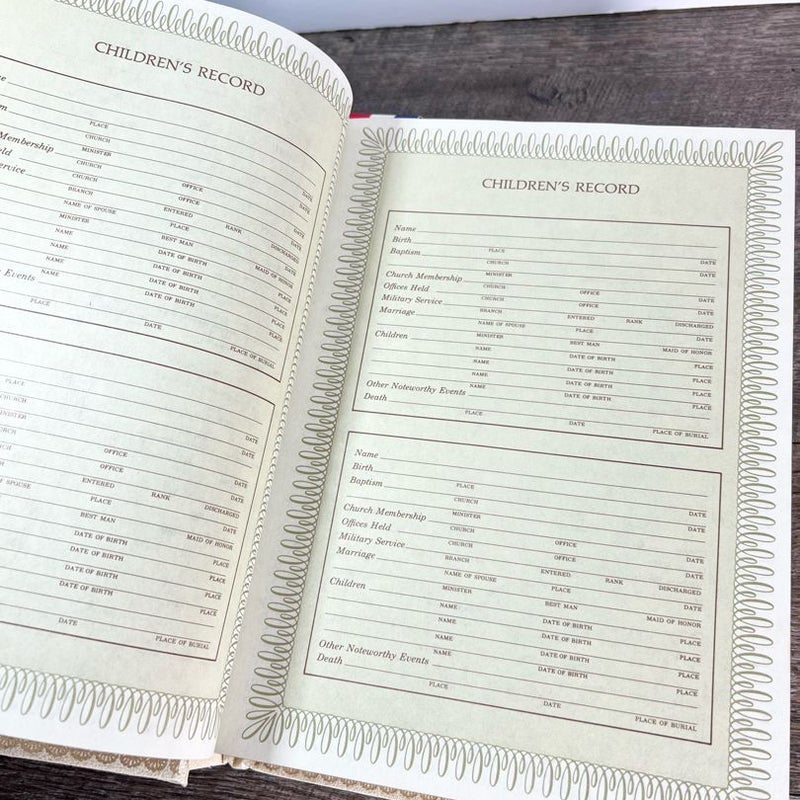 CHILDREN'S RECORD
PLACE DATE
CHURCH DATE
MINISTER
Membership
CHURCH OFFICE DATE
Held
CHURCH OFFICE DATE
Service
BRANCH ENTERED RANK DISCHARGED
NAME OF SPOUSE PLACE DATE
MINISTER BEST MAN MAID OF HONOR
NAME DATE OF BIRTH PLACE
NAME DATE OF BIRTH PLACE
NAME DATE OF BIRTH PLACE
Events NAME DATE OF BIRTH PLACE
PLACE DATE PLACE OF BURIAL
PLACE DATE
CHURCH DATE
MINISTER
OFFICE DATE
OFFICE DATE
ENTERED RANK DISCHARGED
SPOUSE PLACE DATE
BEST MAN MAID OF HONOR
DATE OF BIRTH PLACE
DATE OF BIRTH PLACE
DATE OF BIRTH PLACE
DATE OF BIRTH PLACE
DATE PLACE OF BURIAL
CHILDREN'S RECORD
Name
Birth
PLACE DATE
Baptism
CHURCH DATE
MINISTER
Church Membership
CHURCH OFFICE DATE
Offices Held
CHURCH OFFICE DATE
Military Service
BRANCH ENTERED RANK DISCHARGED
Marriage
NAME OF SPOUSE PLACE DATE
MINISTER BEST MAN MAID OF HONOR
Children
NAME DATE OF BIRTH PLACE
NAME DATE OF BIRTH PLACE
NAME DATE OF BIRTH PLACE
NAME DATE OF BIRTH PLACE
Other Noteworthy Events
Death
PLACE DATE PLACE OF BURIAL
Name
Birth
PLACE DATE
Baptism
CHURCH DATE
MINISTER
Church Membership
CHURCH OFFICE DATE
Offices Held
CHURCH OFFICE DATE
Military Service
BRANCH ENTERED RANK DISCHARGED
Marriage
NAME OF SPOUSE PLACE DATE
MINISTER BEST MAN MAID OF HONOR
Children
NAME DATE OF BIRTH PLACE
NAME DATE OF BIRTH PLACE
NAME DATE OF BIRTH PLACE
NAME DATE OF BIRTH PLACE
Other Noteworthy Events
Death
PLACE DATE PLACE OF BURIAL